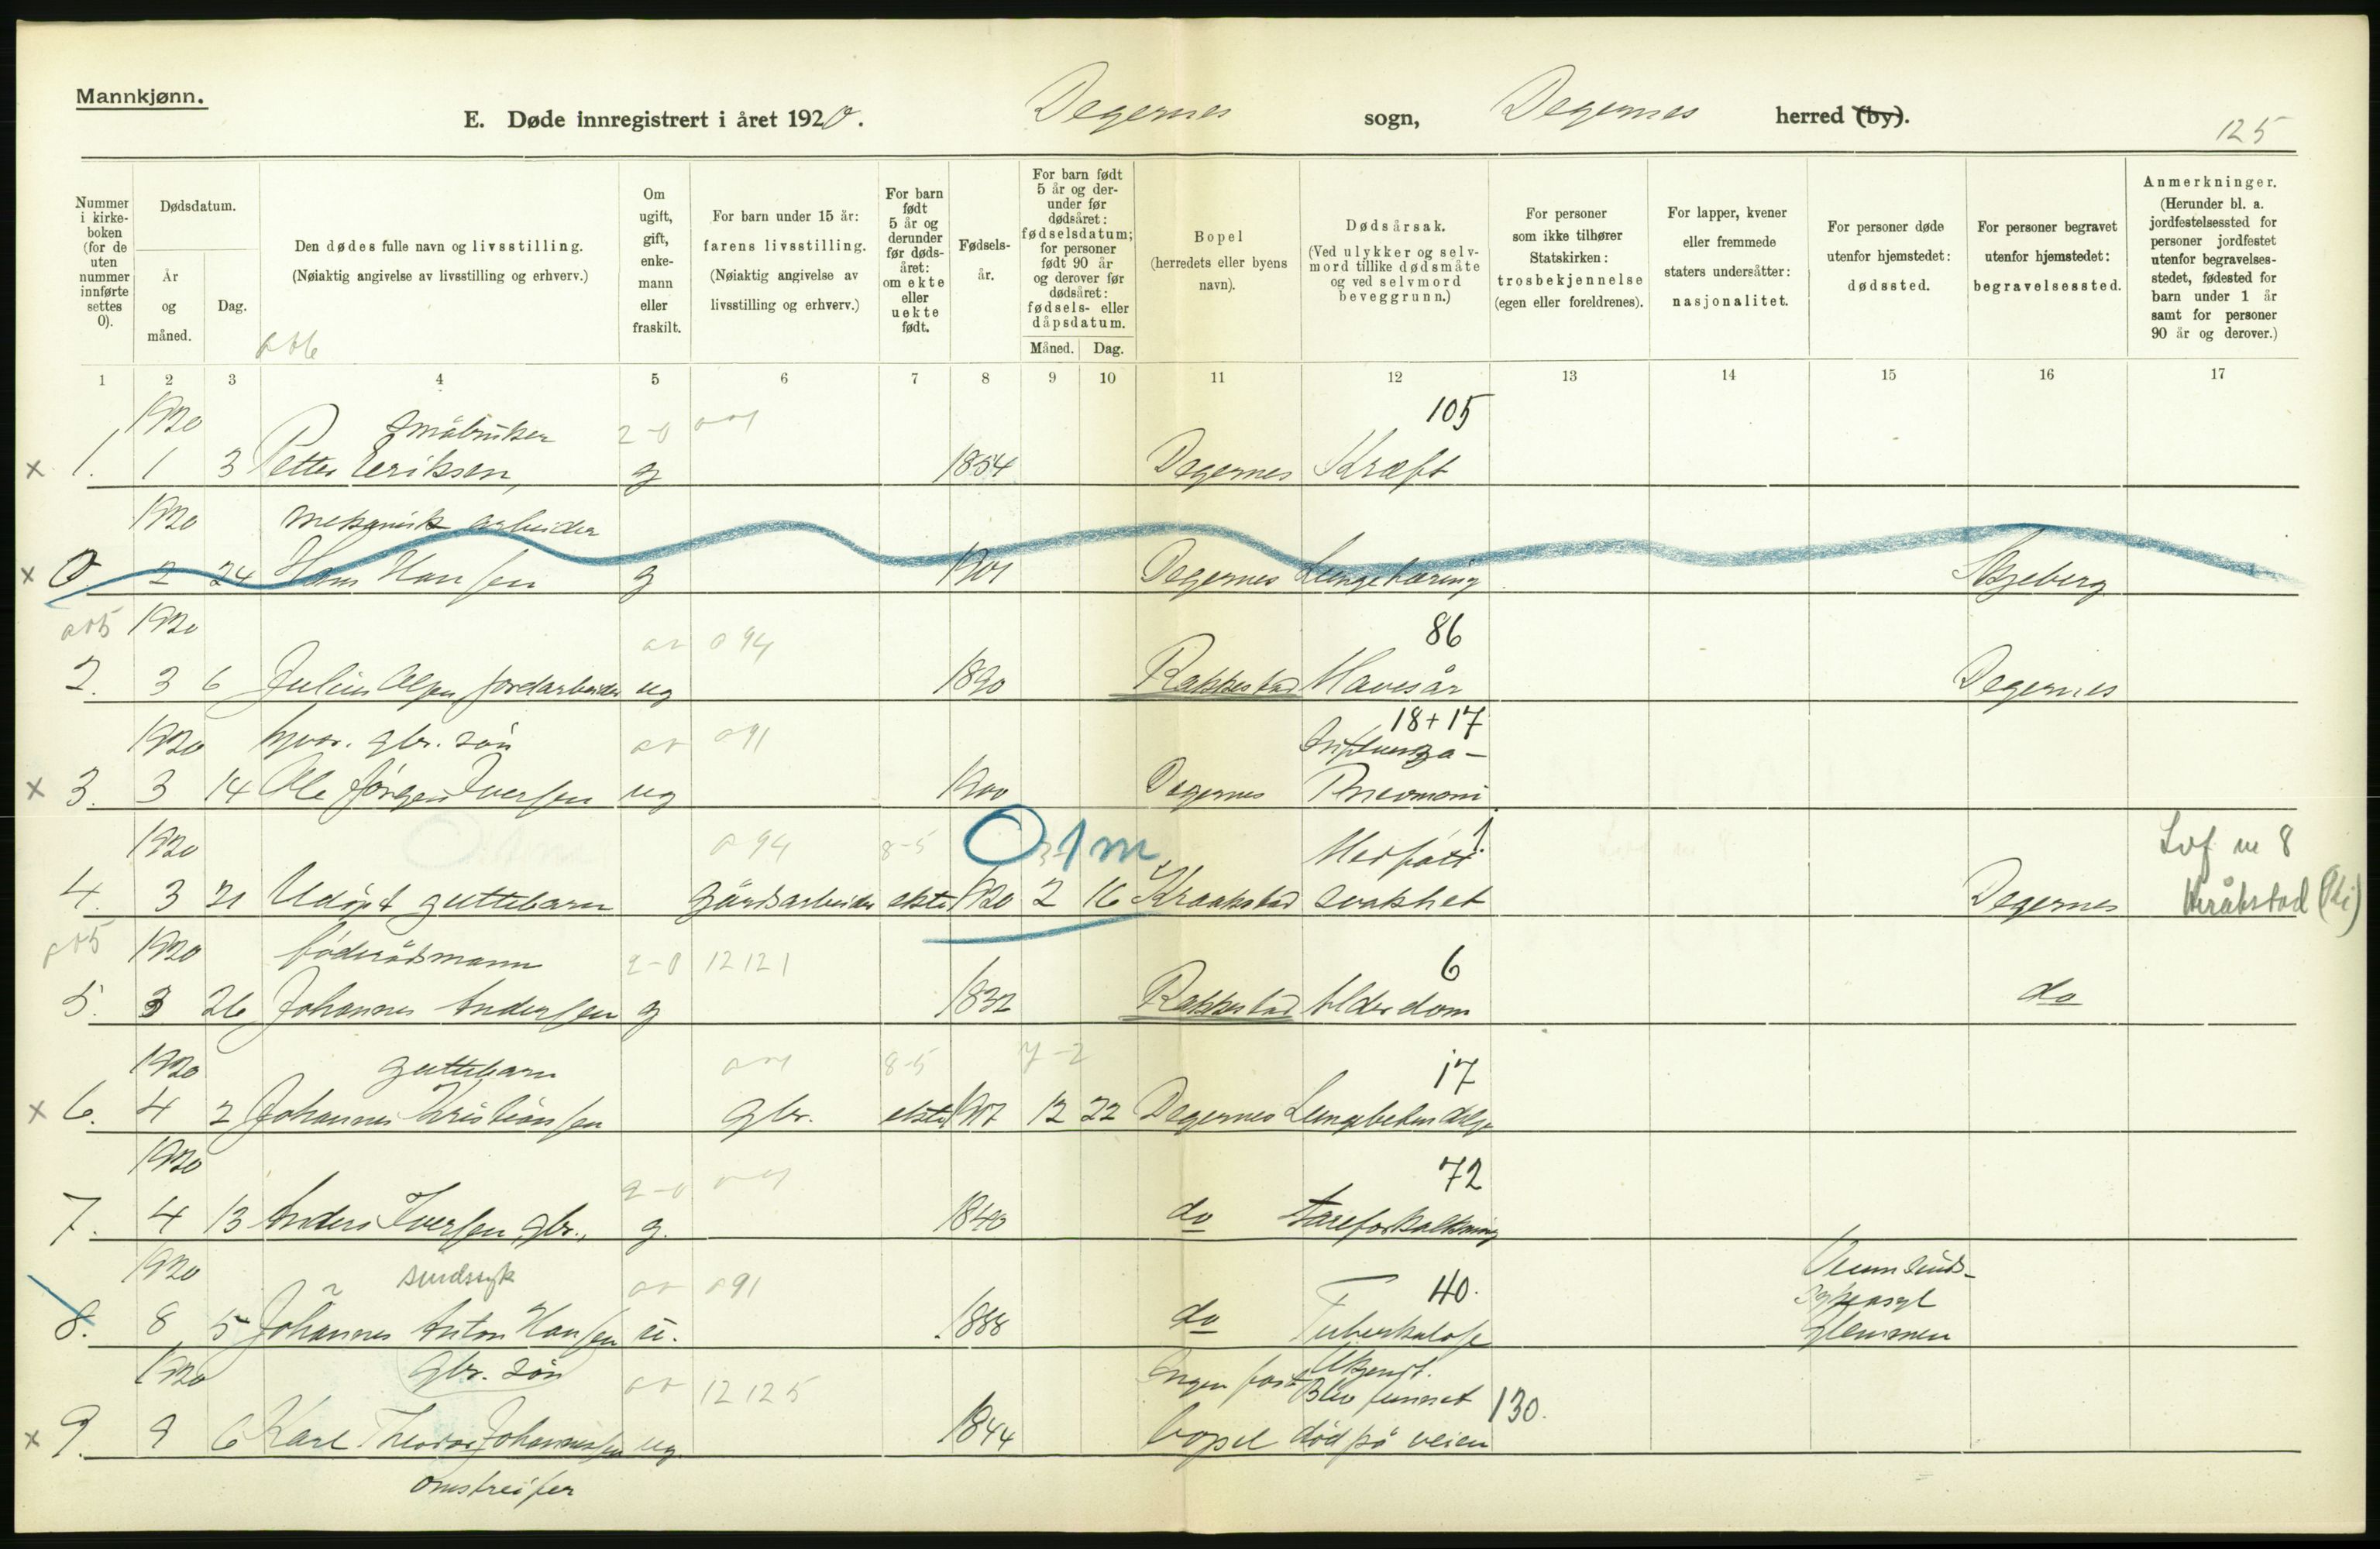 Mannkjønn.
E. Døde innregistrert i året 1920. Degernes sogn, Degernes herred (by).
125
Nummer i kirkeboken (for de uten nummer innførte settes 0).
Dødsdatum.
År og måned.
Dag.
Den dødes fulle navn og livsstilling.
(Nøiaktig angivelse av livsstilling og erhverv.)
Om ugift, gift, enkemann eller fraskilt.
For barn under 15 år: farens livsstilling.
(Nøiaktig angivelse av livsstilling og erhverv.)
For barn født 5 år og derunder før dødsåret: om ekte eller uekte født.
Fødselsår.
For barn født 5 år og derunder før dødsåret: fødselsdatum; for personer født 90 år og derover før dødsåret: fødsels- eller dåpsdatum.
Måned. Dag.
Bopel
(herredets eller byens navn).
Dødsårsak.
(Ved ulykker og selvmord tillike dødsmåte og ved selvmord beveggrunn.)
For personer som ikke tilhører Statskirken: trosbekjennelse (egen eller foreldrenes).
For lapper, kvener eller fremmede staters undersåtter: nasjonalitet.
For personer døde utenfor hjemstedet: dødssted.
For personer begravet utenfor hjemstedet: begravelsessted.
Anmerkninger.
(Herunder bl. a. jordfestelsessted for personer jordfestet utenfor begravelsesstedet, fødested for barn under 1 år samt for personer 90 år og derover.)
1 2 3 4 5 6 7 8 9 10 11 12 13 14 15 16 17
1920 småbruker 2-0 105
x 1. 1 3 Petter Eriksen, g 1854 Degernes Kræft
1920 mekanisk arbeider
x 0 2 24 Hans Hansen g 1901 Degernes Lungetæring Skjeberg
1920 094 86
2. 3 6 Julius Olsen jordarbeider ug 1890 Rakkestad Mavesår Degernes
1920 gbr. søn 091 18+17 Influenza-
x 3. 3 14 Ole Jørgen Iversen ug 1900 Degernes Pnevmoni
1920 094 8-5 O 1 m Medfødt
4. 3 21 Udøpt guttebarn gårdsarbeider ekte 1920 2 16 Kraakstad svakhet Degernes Kråkstad (Ski)
1920 føderådsmann 2-0 12121 6
5. 3 26 Johannes Andersen g 1832 Rakkestad Alderdom do
1920 guttebarn 8-5 7-2 17
x 6. 4 2 Johannes Kristiansen gbr. ekte 1917 12 22 Degernes Lungebetendelse
1920 2-0 72
7. 4 13 Anders Iversen, gbr., g. 1840 do Åreforkalkning
1920 sindssyk 091 40. Veum sinds-
8. 8 5 Johannes Anton Hansen u. 1888 do Tuberkulose sykeasyl Glemmen
1920 gbr. søn 12125 Ingen fast Ukjendt. Blev funnet 130.
x 9. 9 6 Karl Theodor Johannessen ug. 1844 bopel død på veien
omstreifer